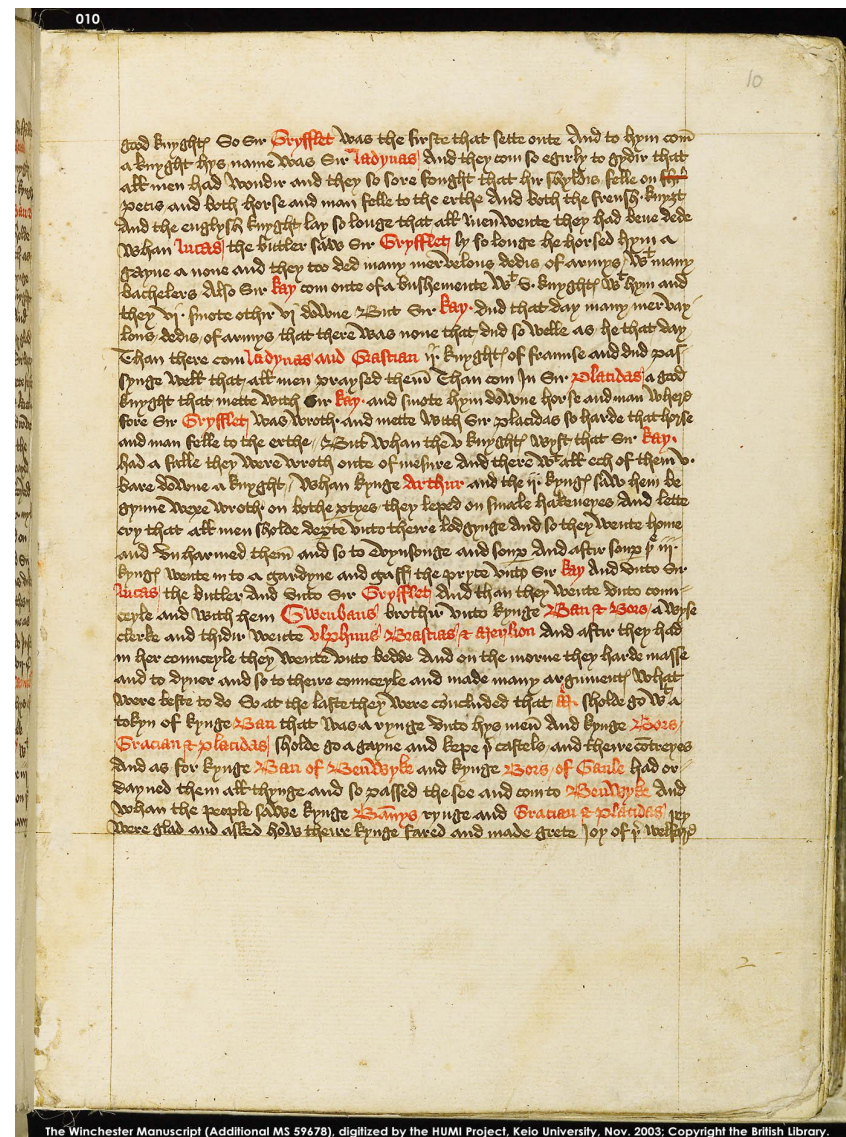 010
10
god knyghtes So Sir Gryfflet was the firste that sette oute And to hym com
a knyght hys name was Sir ladynas And they com so egirly to gydir that
all men had wondir and they so sore fought that hir shyldis felle on
pecis and both horse and man felle to the erthe And both the frensh knyȝt
And the englysch knyght lay so longe that all men wente they had bene dede
Whan lucas the buttler saw Sir Gryfflet ly so longe he horsed hym a
gayne a none and they too ded many mervelous dedis of armys wt many
bachelers Also Sir kay com oute of a bushemente wt .v. knyghtes wt hym and
they vj smote othir vj downe But Sir kay dud that day many mervay
lous dedis of armys that there was none that dud so welle as he that day
Than there com ladynas and Grastian ij knyghtes of fraunse and dud pas
synge well that all men praysed them Than com In Sir Placidas a god
knyght that mette with Sir kay and smote hym downe horse and man where
fore Sir Gryfflet was wroth and mette with Sir placidas so harde that horse
and man felle to the erthe But whan the v knyghtes wyst that Sir kay
had a falle they were wroth oute of mesure And there wt all ech of them v
bare downe a knyght Whan kynge Arthur and the ij kynges saw hem be
gynne wexe wroth on bothe ptyes they leped on smale hakeneyes And lette
cry that all men sholde depte vnto theire lodgynge And so they wente home
and vn harmed them and so to evynsonge and soup And aftir soup þe iij
kynges wente in to a gardyne and gaff the pryce vnto Sir kay And vnto Sir
lucas the butler And vnto Sir Gryfflet And than they wente vnto coun
ceyle and with hem Gwenbaus brothir vnto kynge Ban & Bors a wyse
clerke and thidir wente vlphuns Brastias & Merlion And aftir they had
in her counceyle they wente vnto bedde And on the morne they harde masse
and to dyner and so to theire counceyle and made many argumentes what
were beste to do So at the laste they were cōcluded that sholde go wt a
tokyn of kynge Ban that was a rynge vnto hys men And kynge Bors
Gracian & placidas sholde go a gayne and kepe þe castels and theire cōtreyes
And as for kynge Ban of Benwyke and kynge Bors of Gaule had or
dayned them all thynge and so passed the see and com to Benwyke And
whan the people sawe kynge Bannys rynge and Gracian & placidas they
were glad and asked how theire kynge fared and made grete Joy of þe welfare
The Winchester Manuscript (Additional MS 59678), digitized by the HUMI Project, Keio University, Nov. 2003; Copyright the British Library.